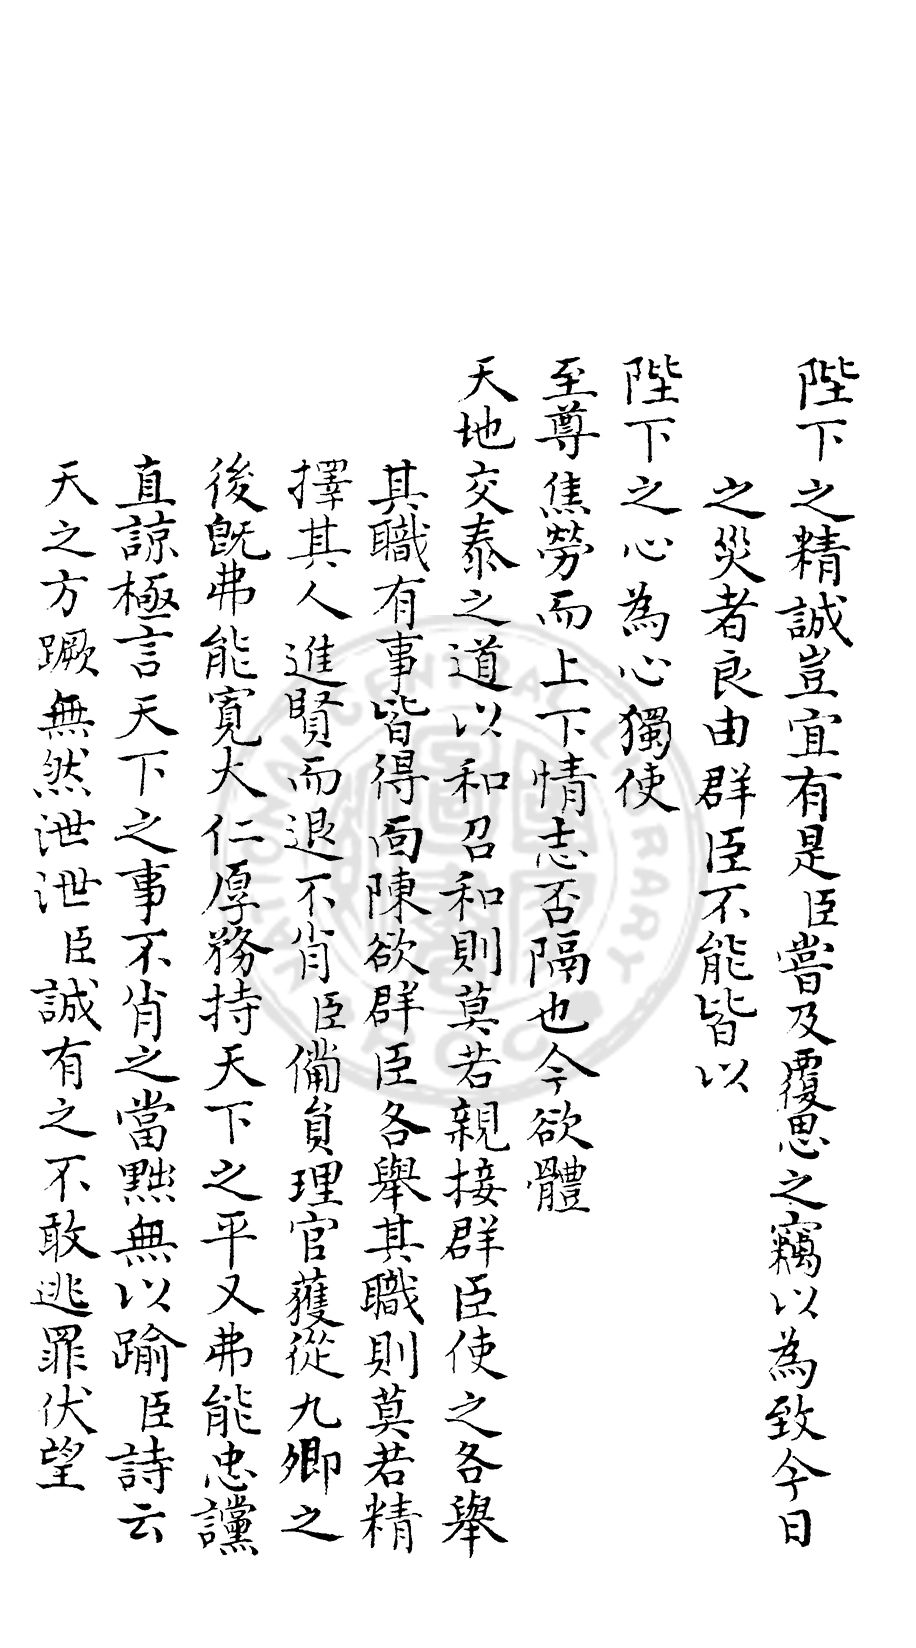 陛下之精誠豈宜有是臣嘗及覆思之竊以為致今日
之災者良由群臣不能皆以
陛下之心為心獨使
至尊焦勞而上下情志否隔也今欲體
天地交泰之道以和召和則莫若親接群臣使之各舉
其職有事皆得面陳欲群臣各舉其職則莫若精
擇其人進賢而退不肖臣備員理官獲從九卿之
後旣弗能寬大仁厚務持天下之平又弗能忠讜
直諒極言天下之事不肖之當黜無以踰臣詩云
天之方蹶無然泄泄臣誠有之不敢逃罪伏望
NATIONAL CENTRAL LIBRARY